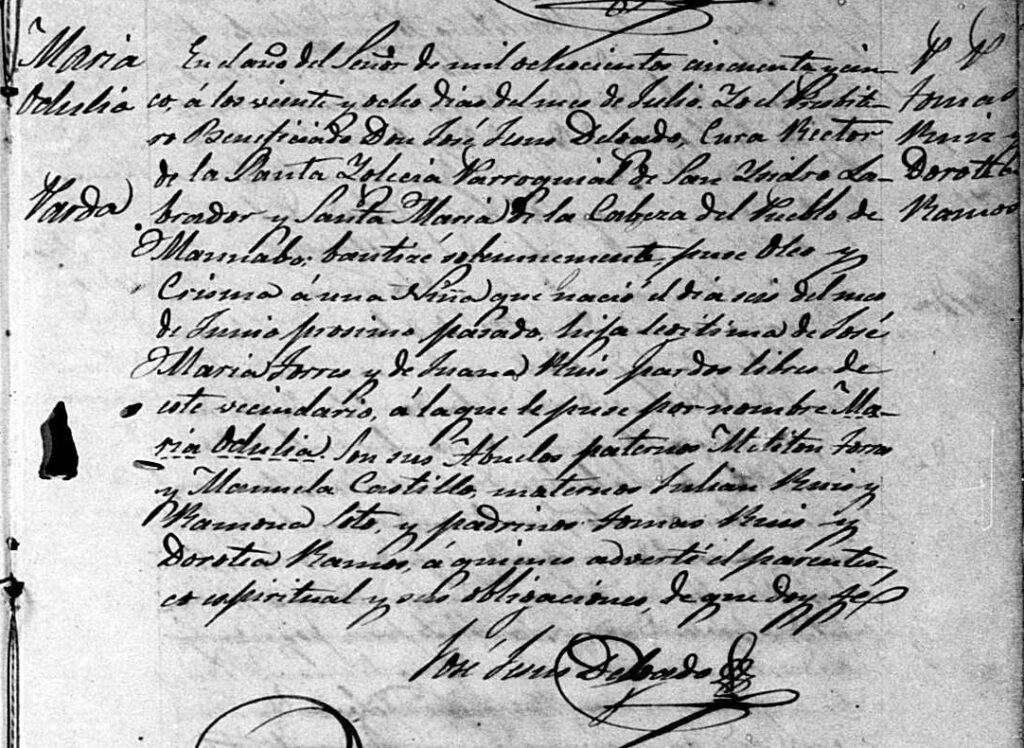 Maria
Odulia
Parda
En el año del Señor de mil ochocientos cincuenta y cin-
co, á los veinte y ocho dias del mes de Julio. Yo el Presbite-
ro Beneficiado Don José Delgado, Cura Rector
de la Santa Yglecia Parroquial de San Ysidro La-
brador y Santa Maria de la Cabeza del Pueblo de
Maunabo; bautizé solemnemente, puse Oleo y
Crisma á una Niña que nació el dia seis del mes
de Junio prosimo pasado, hija legitima de José
Maria Torres y de Juana Ruis pardos libres de
este vecindario, á la que le puse por nombre Ma-
ria Odulia. Son sus Abuelos paternos Militon Torres
y Manuela Castillo, maternos Julian Ruis y
Ramona Soto, y padrinos Tomas Ruis y
Dorotea Ramos, á quienes advertí el parentes-
co espiritual y sus obligaciones, de que doy fé
José Delgado
P P
Tomas
Ruiz y
Dorotea
Ramos